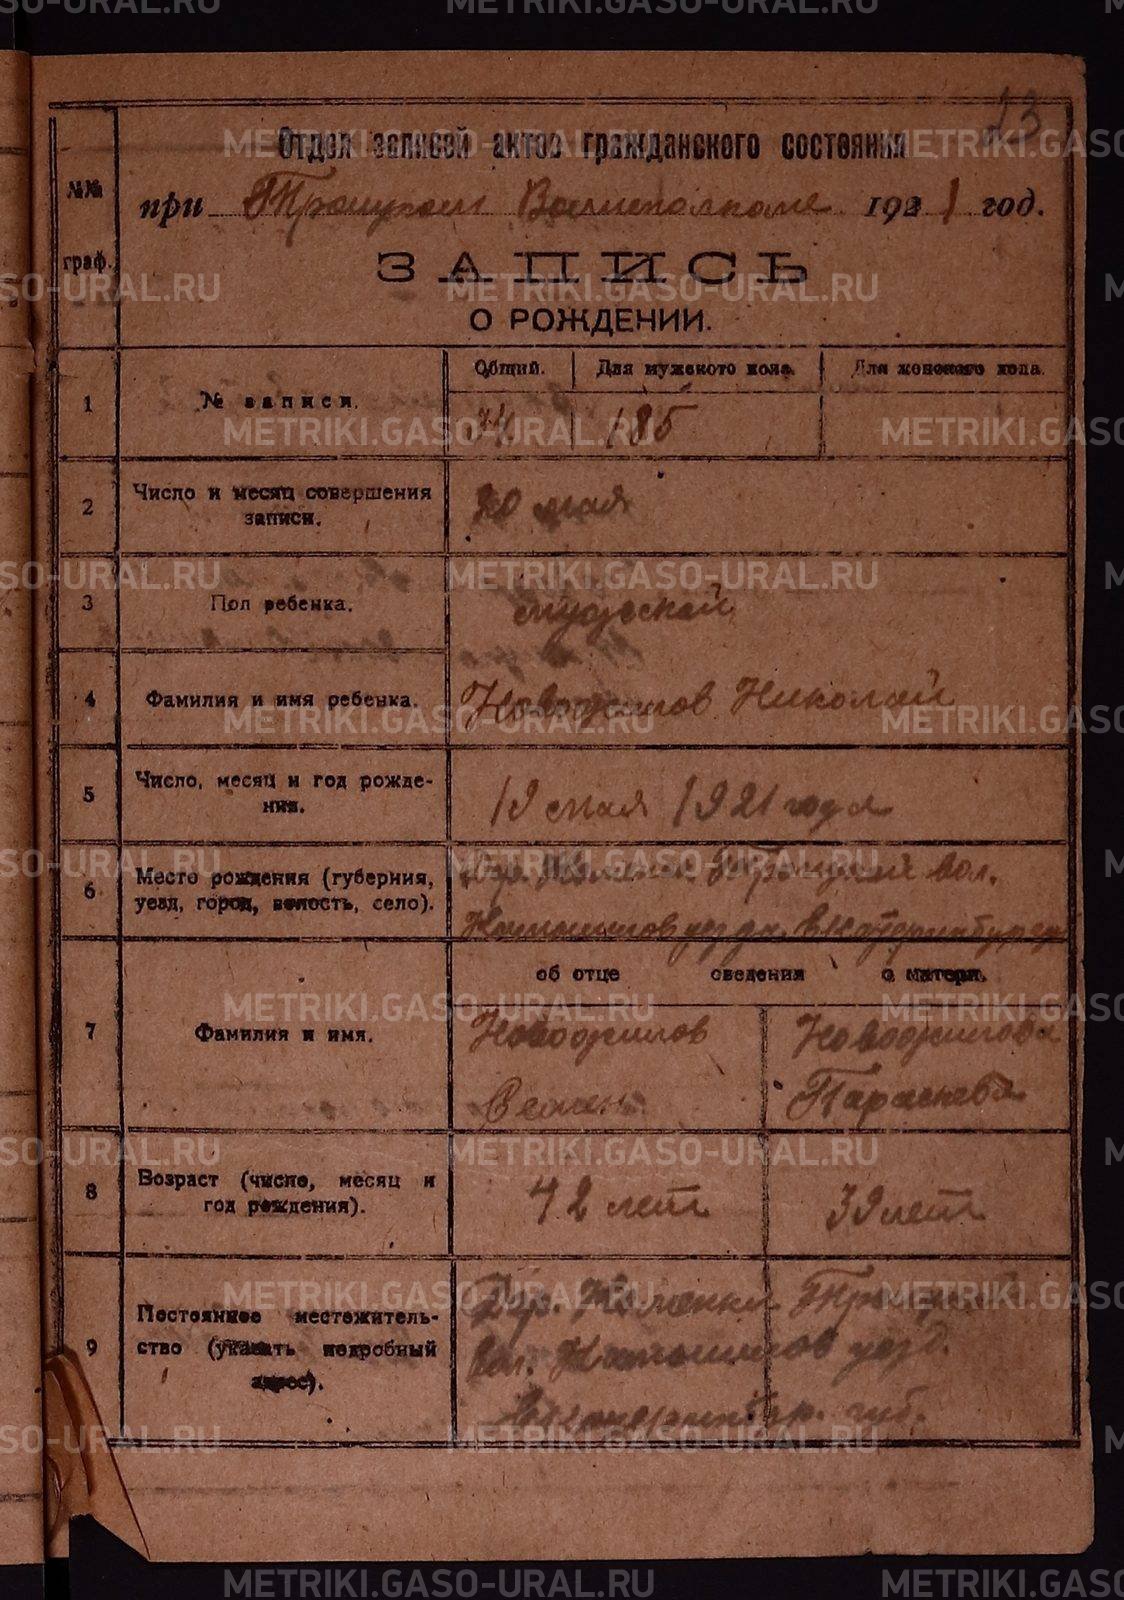 23
Отдел записей актов гражданского состояния
№№ граф.
при Троицком Волисполкоме 1921 год.
ЗАПИСЬ
О РОЖДЕНИИ.
1 № записи. Общий. Для мужского пола. Для женского пола.
185
2 Число и месяц совершения записи. 20 мая
3 Пол ребенка. мужской
4 Фамилия и имя ребенка. Новожилов Николай
5 Число, месяц и год рождения. 19 мая 1921 года
6 Место рождения (губерния, уезд, город, волость, село). Дер. Троицкой вол.
Камышлов уезда
об отце сведения о матери.
7 Фамилия и имя. Новожилов Новожилова
Семен
8 Возраст (число, месяц и год рождения). 42 лет 39 лет
9 Постоянное местожительство (указать подробный адрес). Дер. Троицкой
вол. Камышлов уезд.
Екатеринбур. губ.
METRIKI.GASO-URAL.RU